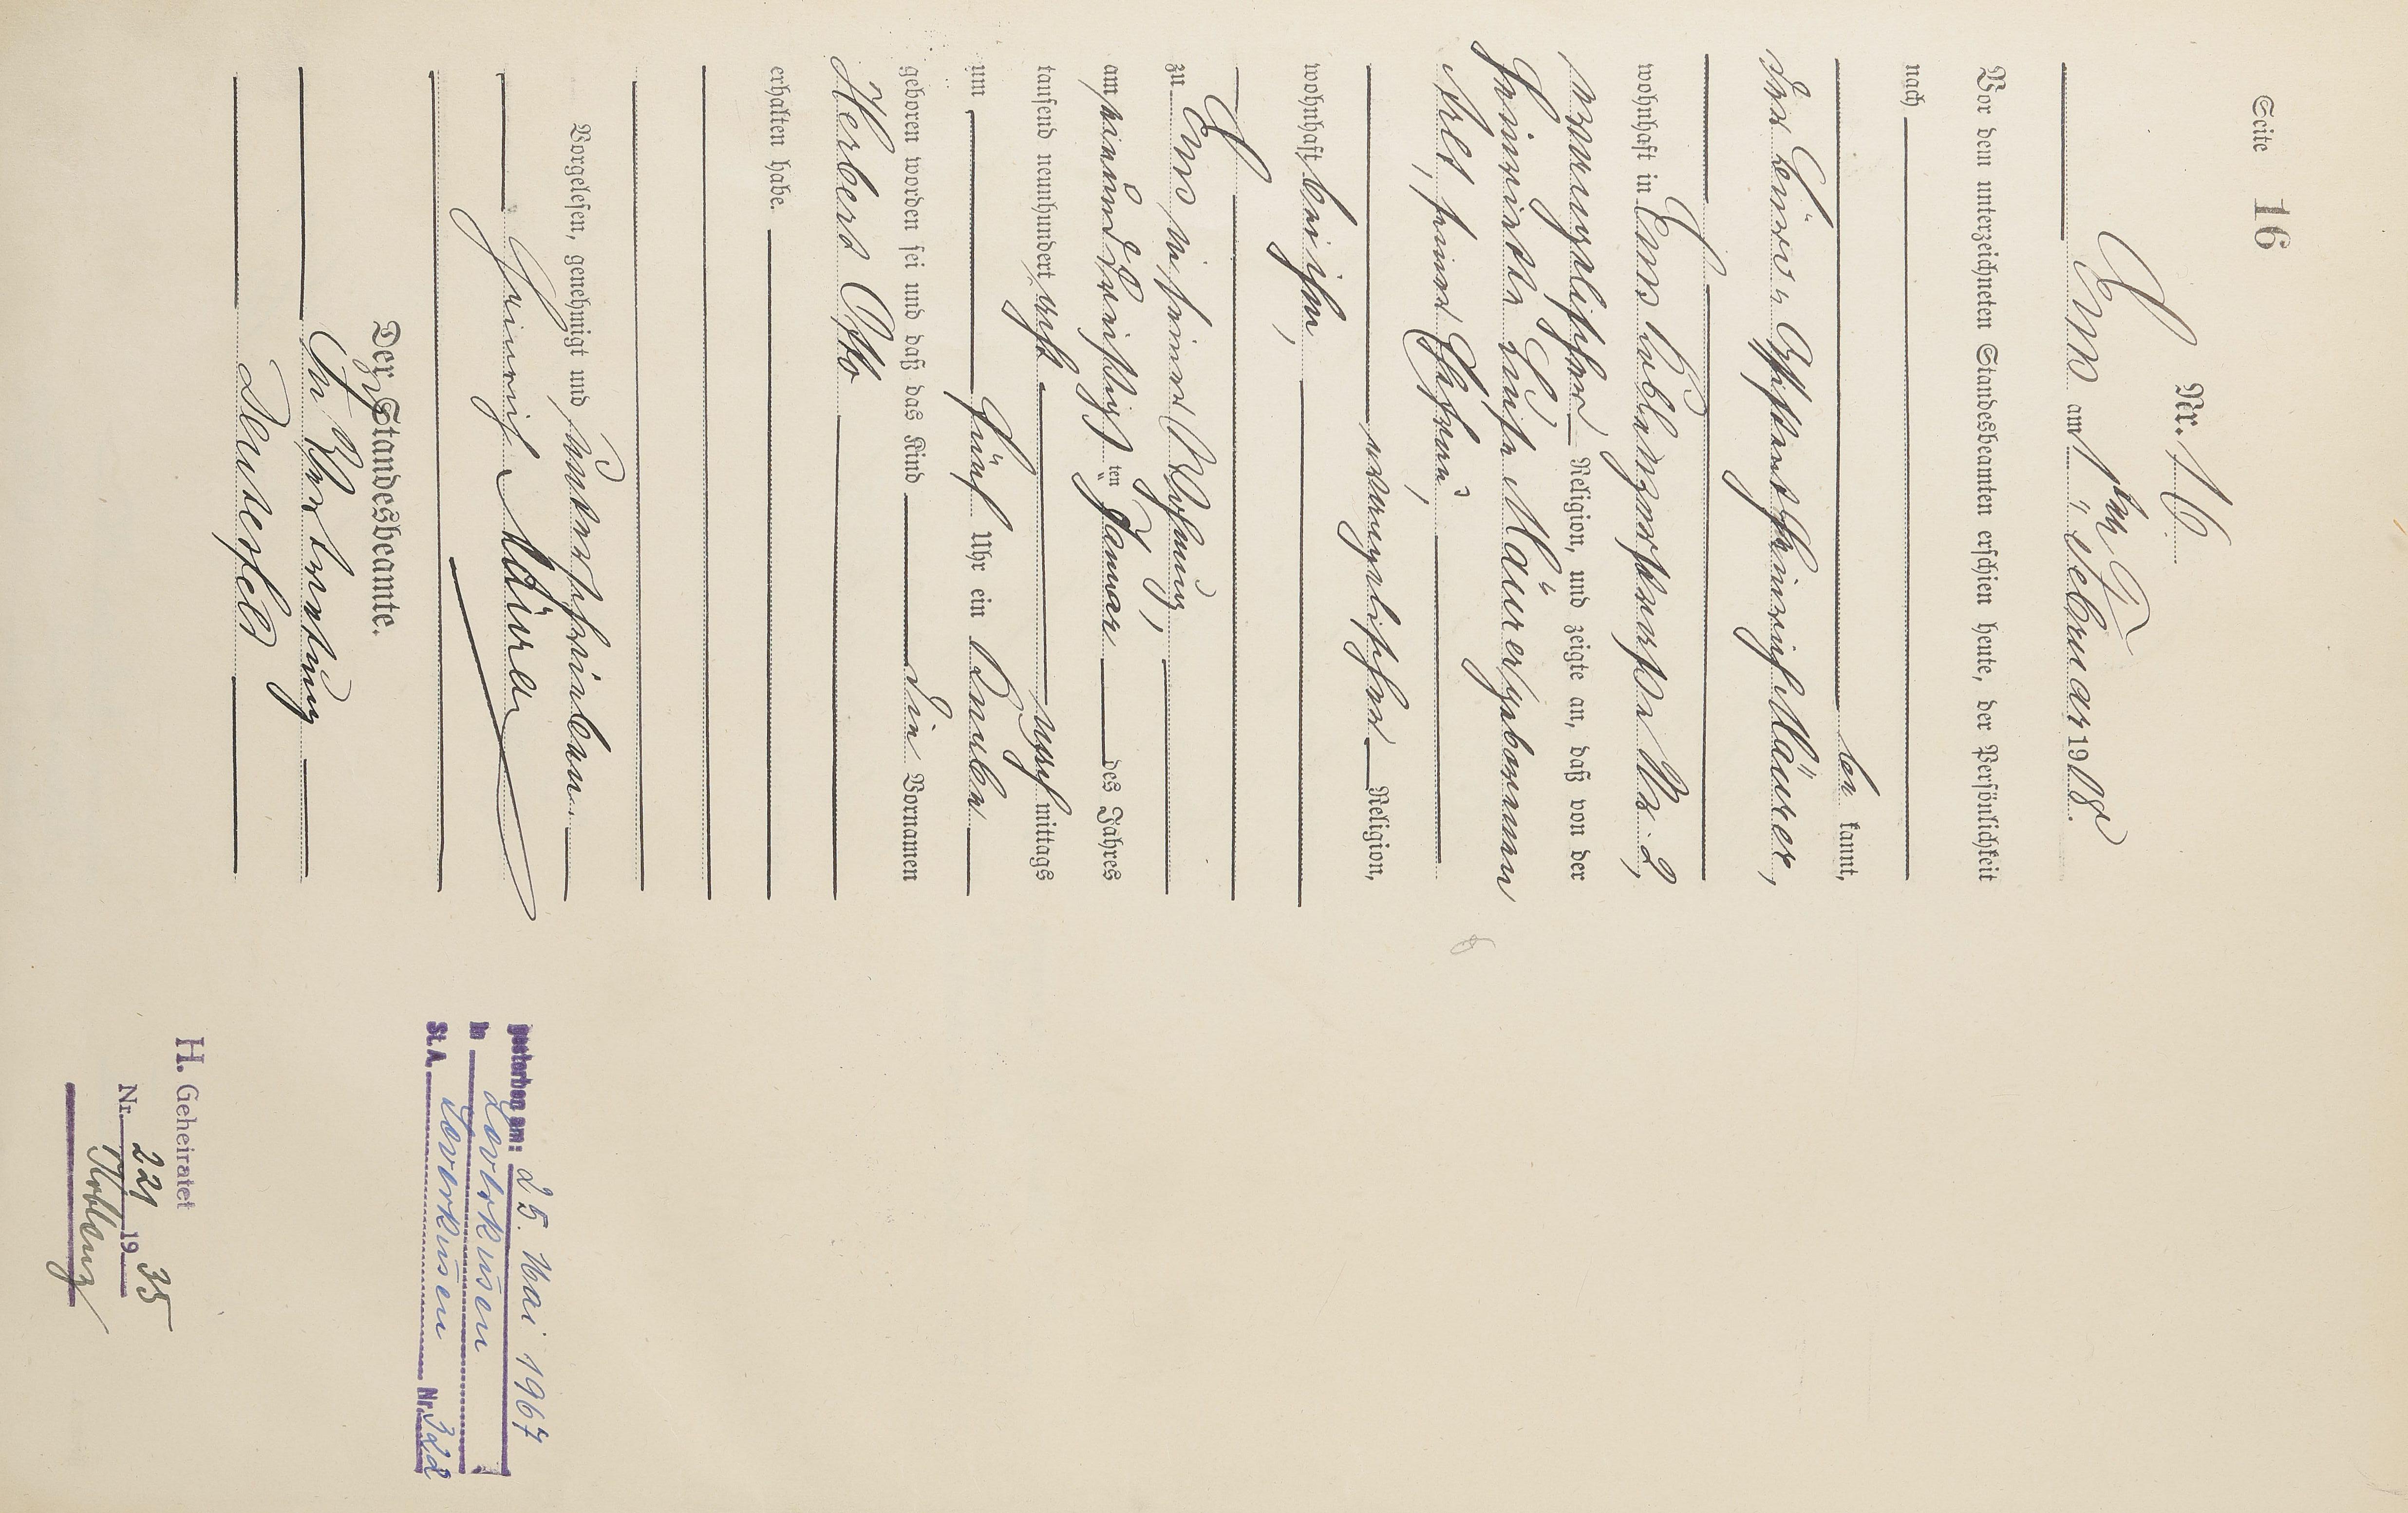 Seite 16
Nr. 16.
Ems am 1ten Februar 1908.
Vor dem unterzeichneten Standesbeamten erschien heute, der Persönlichkeit
nach
be kannt,
der Heinrich Mäurer,
wohnhaft in Ems, Coblenzerstrasse Nr. 2,
evangelischer Religion, und zeigte an, daß von der
Henriette Luise Mäurer geborenen
seiner Ehefrau,
evangelischer Religion,
wohnhaft bei ihm,
zu Ems in seiner Wohnung,
am einunddreißigsten Januar des Jahres
tausend neunhundert acht nach mittags
um fünf Uhr ein Knabe
geboren worden sei und daß das Kind die Vornamen
Herbert Otto
erhalten habe.
Vorgelesen, genehmigt und unterschrieben.
Heinrich Mäurer
Der Standesbeamte.
In Vertretung
gestorben am: 25. Mai 1967
in Leverkusen
St.A. Leverkusen Nr. 328
H. Geheiratet
Nr. 221 1935
Koblenz